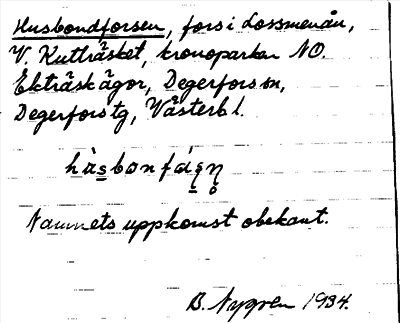 Husbondforsen, fors i Lossmenån,
V. Kutträsket, kronoparken NO.
Ekträskågor, Degerfors sn,
Degerfors tg, Västerb l.
hùsbonfáʂn̥
Namnets uppkomst obekant.
B. Nygren 1934.